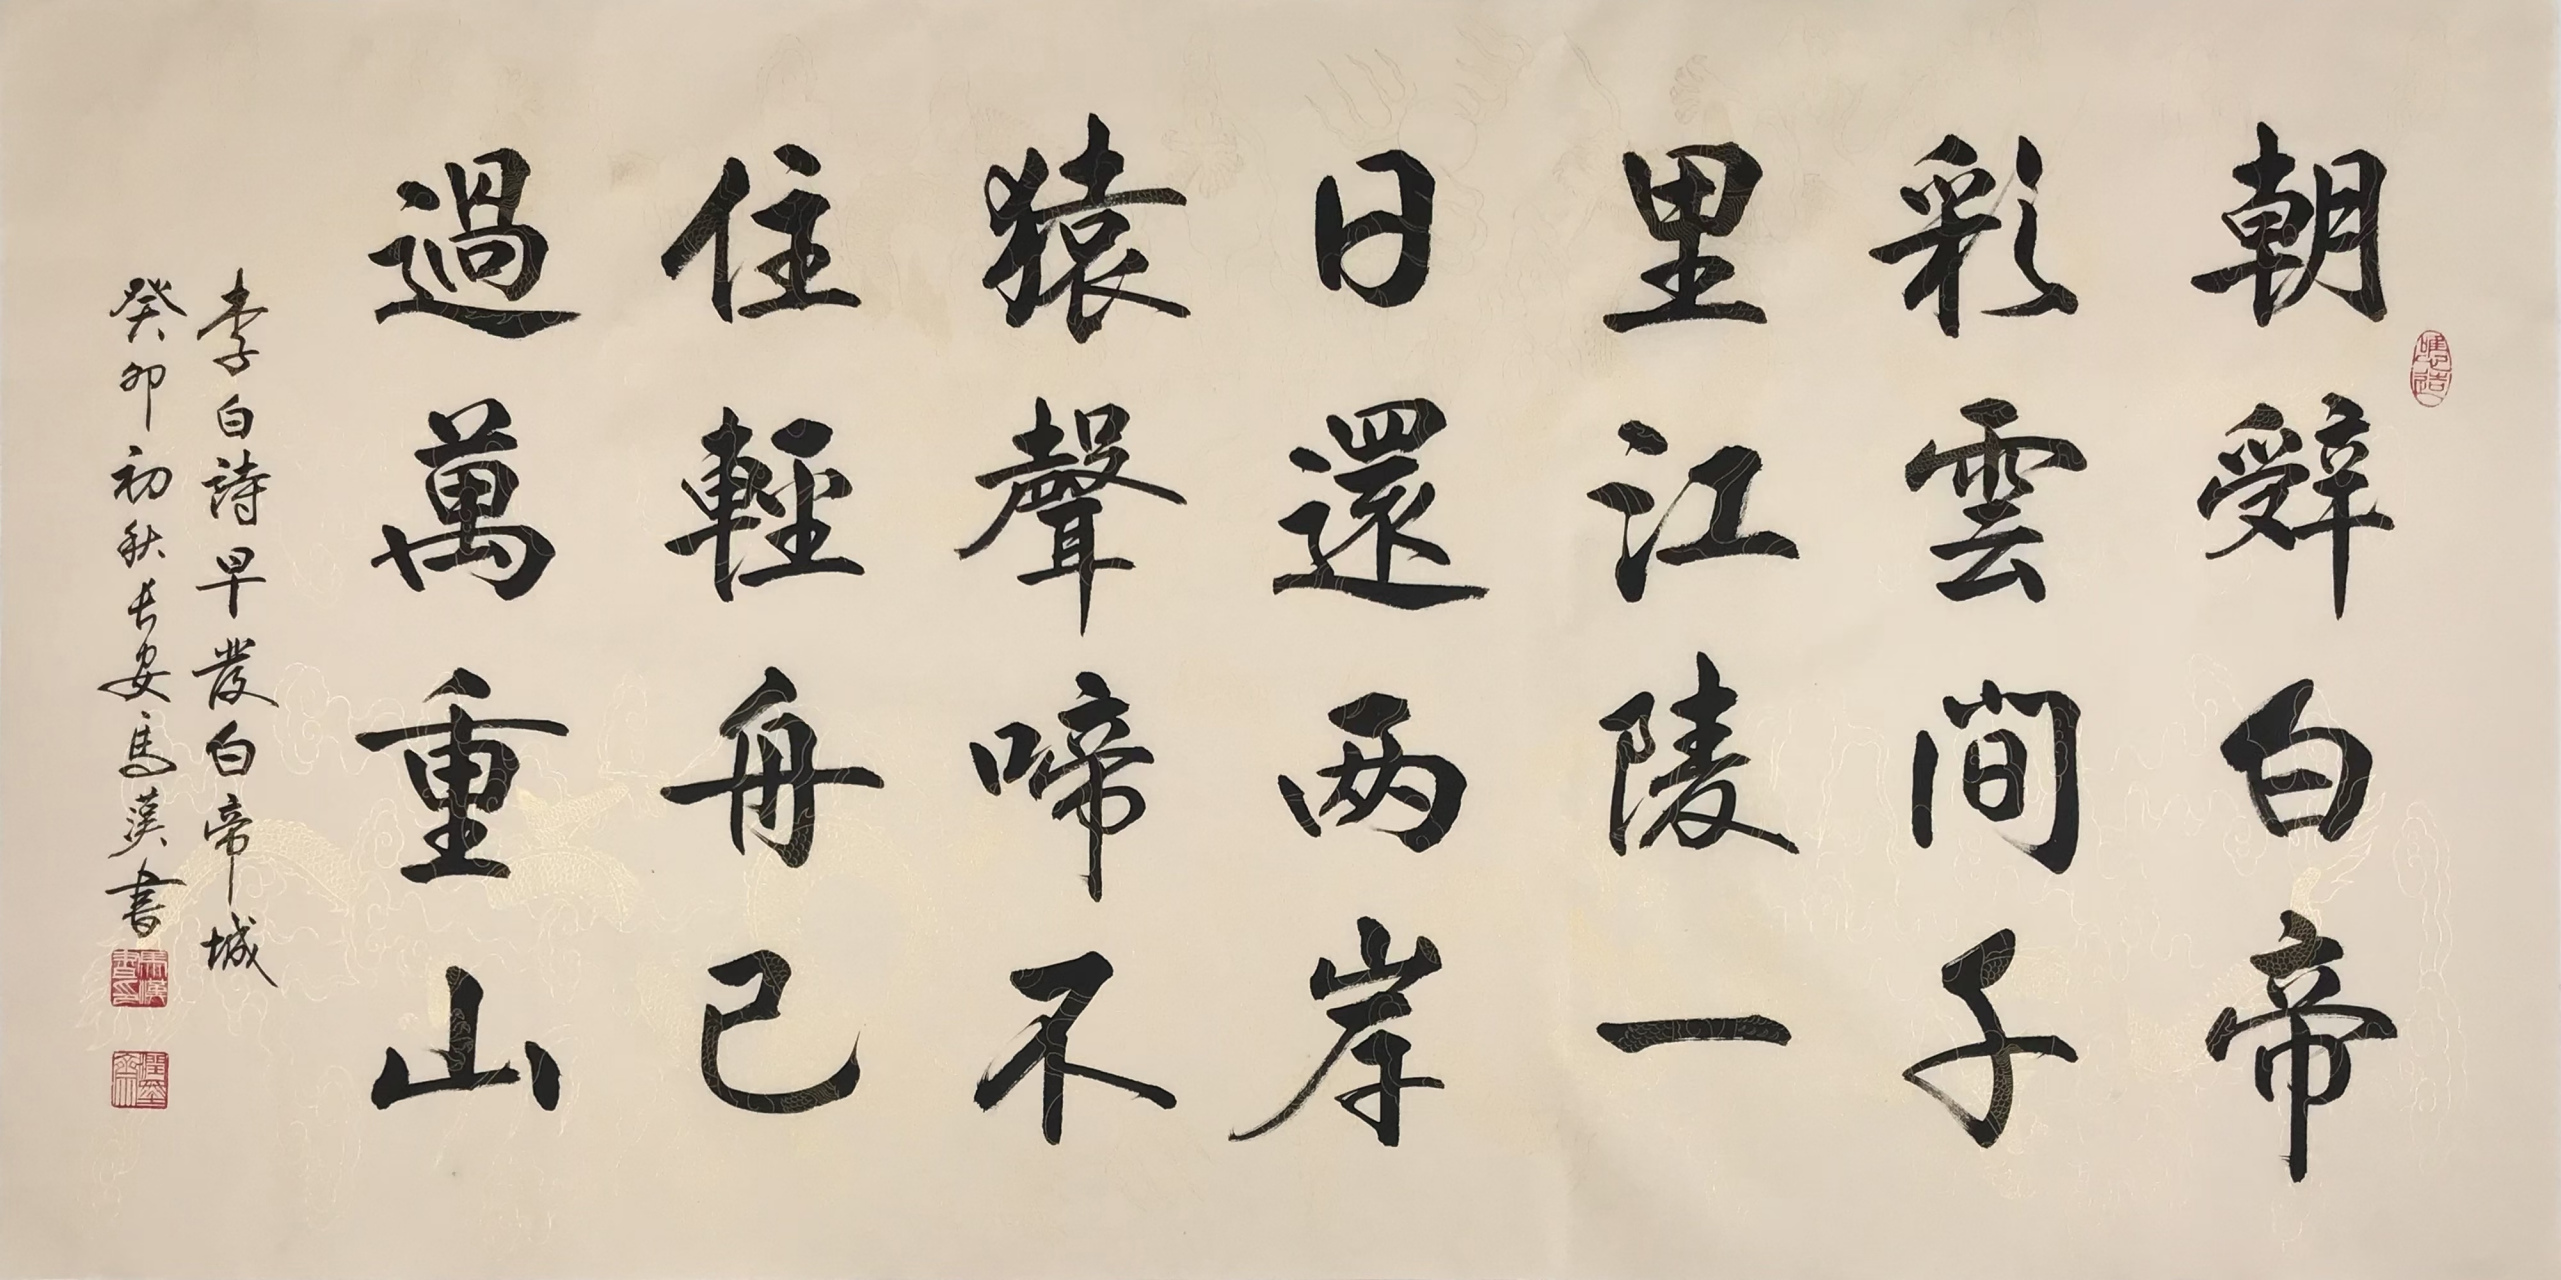 朝辭白帝
彩雲間子
里江陵一
日還两岸
猿聲啼不
住輕舟已
過萬重山
李白詩早發白帝城
癸卯初秋長安馬漢書
馬漢書印